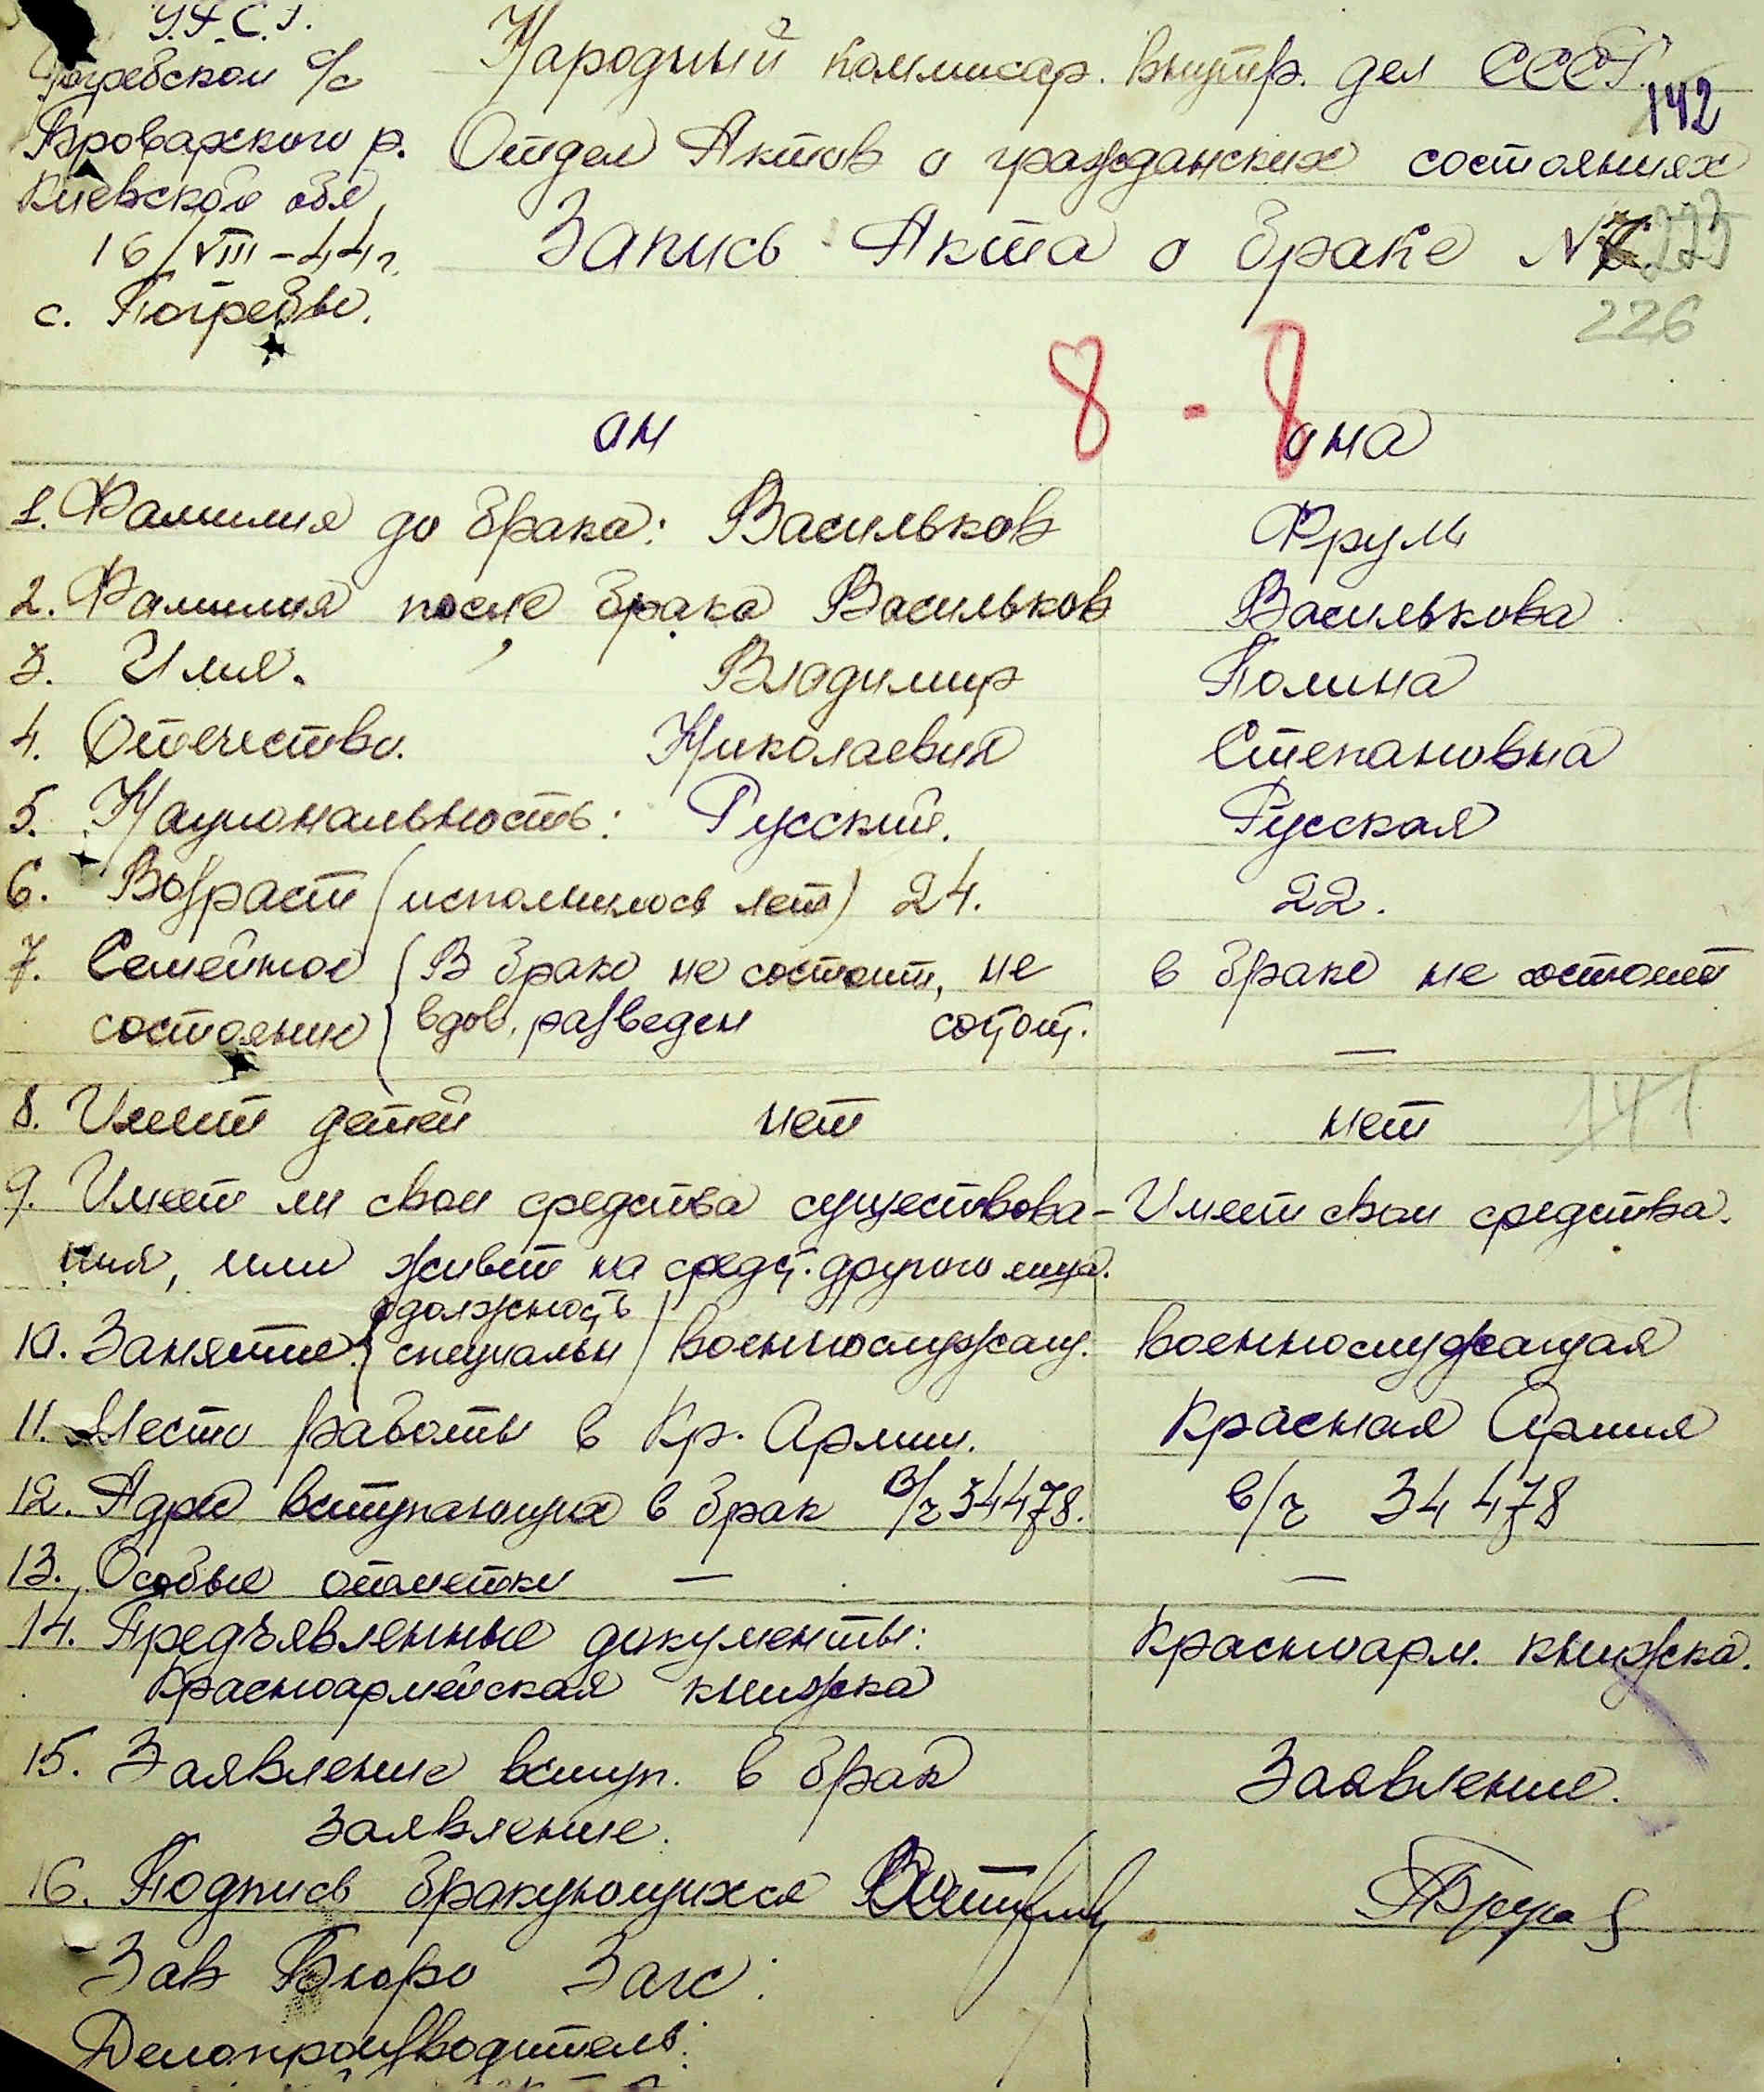 У.С.С.Р.
Погребской с/с
Броварского р.
Киевской обл.
16/VIII-44 г.
с. Погребы.
Народный Коммисар. Внутр. дел СССР
142
Отдел Актов о гражданских состояниях
Запись Акта о браке № 223
226
8 - 8
он она
1. Фамилия до брака: Васильков Фрум
2. Фамилия после брака Васильков Василькова
3. Имя. Владимир Полина
4. Отечество. Николаевич Степановна
5. Национальность: Русский. Русская
6. Возраст (исполнилось лет) 24. 22.
7. Семейное { В браке не состоит, не в браке не состоит
состояние { вдов, разведен состоит. —
8. Имеет детей нет нет
141
9. Имеет ли свои средства существова- Имеет свои средства.
ния, или живет на средст. другого лица.
должность
10. Занятие. { специальн / военнослужащ. военнослужащая
11. Место работы в Кр. Армии. Красная Армия
12. Адрес вступающих в брак в/ч 34478. в/ч 34478
13. Особые отметки — —
14. Предъявленные документы: Красноарм. книжка.
Красноармейская книжка
15. Заявление вступ. в брак Заявление.
заявление.
16. Подписи бракующихся
Зав Бюро Загс:
Делопроизводитель: